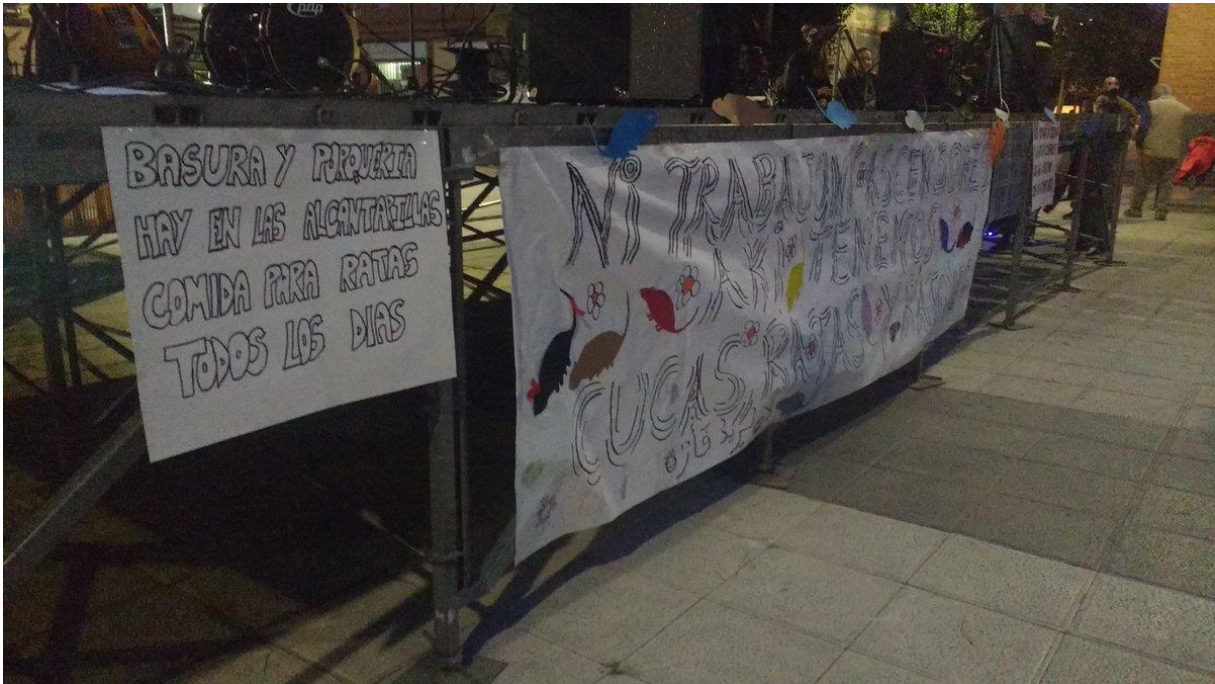 pdp
BASURA Y PORQUERIA
HAY EN LAS ALCANTARILLAS
COMIDA PARA RATAS
TODOS LOS DIAS
NI TRABAJO NI ASCENSORES
AKI TENEMOS
CUCAS, RATAS Y RATONES